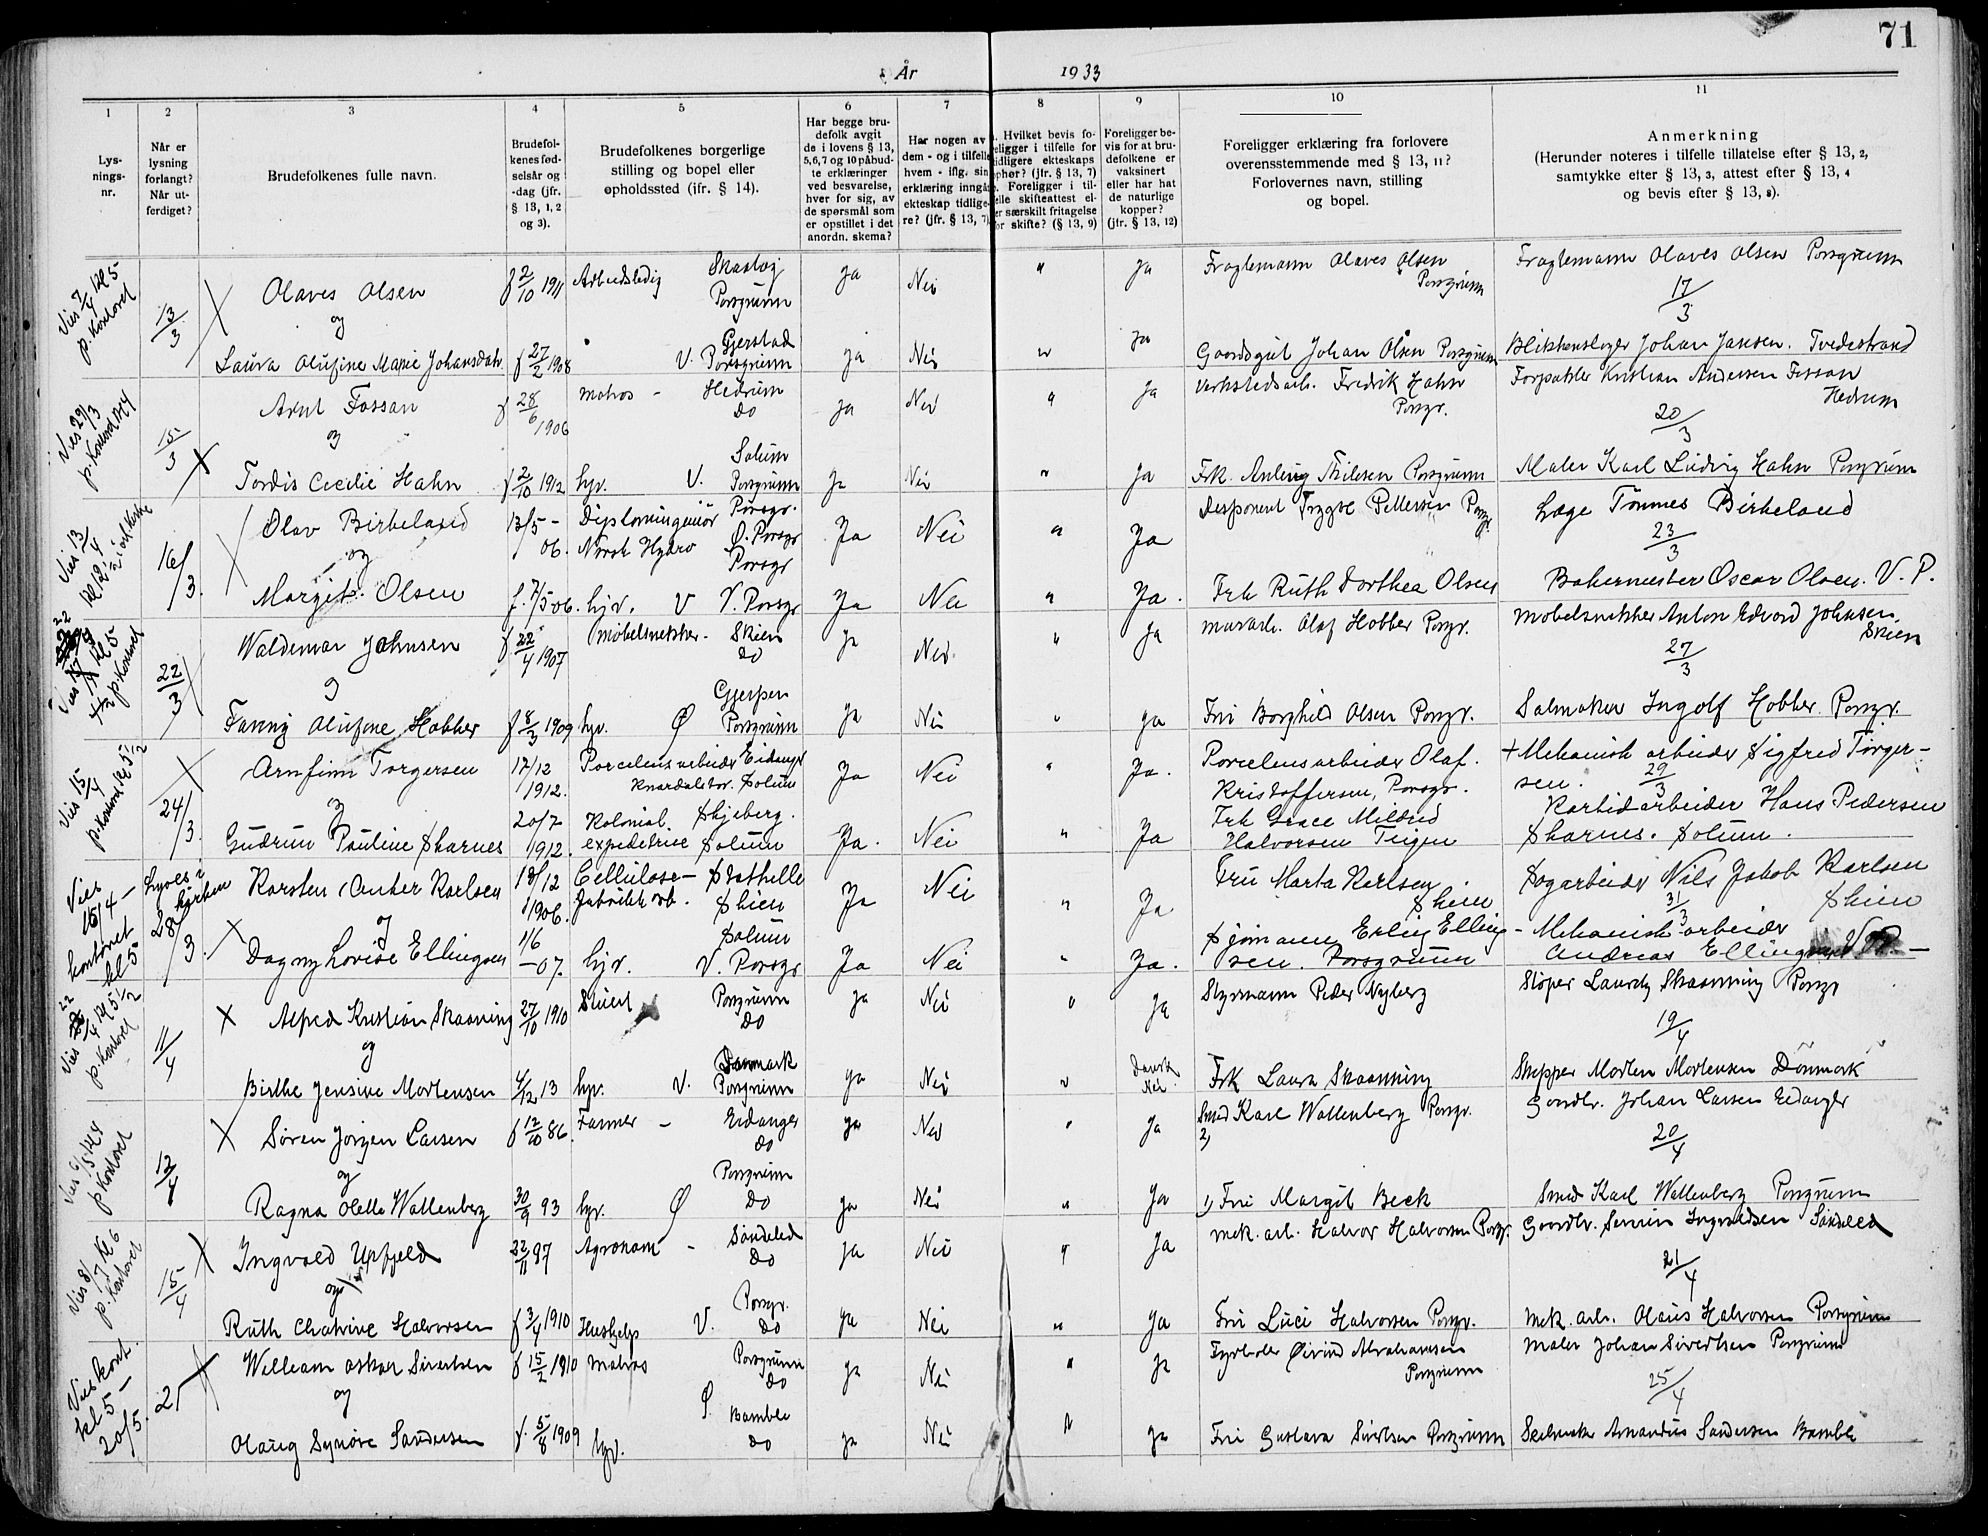 71
År 1933
1 2 3 4 5 6 7 8 9 10 11
Lys-
nings-
nr.
Når er
lysning
forlangt?
Når ut-
ferdiget?
Brudefolkenes fulle navn.
Brudefol-
kenes fød-
selsår og
-dag (jfr.
§ 13, 1, 2
og 3).
Brudefolkenes borgerlige
stilling og bopel eller
opholdssted (ifr. § 14).
Har begge bru-
defolk avgit
de i lovens § 13,
5,6,7 og 10 påbud-
te erklæringer
ved besvarelse,
hver for sig, av
de spørsmål som
er opstillet i det
anordn. skema?
Har nogen av
dem - og i tilfelle
hvem - iflg. sin
erklæring inngå
ekteskap tidlige-
re? (jfr. § 13, 7)
Hvilket bevis fo-
religger i tilfelle for
tidligere ekteskaps
ophør? (jfr. § 13, 7)
Foreligger i til-
felle skifteattest el-
er særskilt fritagelse
for skifte? (§ 13, 9)
Foreligger be-
vis for at bru-
defolkene er
vaksinert
eller har hat
de naturlige
kopper?
(jfr. § 13, 12)
Foreligger erklæring fra forlovere
overensstemmende med § 13, 11?
Forlovernes navn, stilling
og bopel.
Anmerkning
(Herunder noteres i tilfelle tillatelse efter § 13, 2,
samtykke efter § 13, 3, attest efter § 13, 4
og bevis efter § 13, 8).
Vies 7/4 kl 5
p. Kontoret
13/3
Olaves Olsen f 2/10 1911 Arbeidsledig Porsgrunn Ja Nei " Ja Fragtemann Olaves Olsen Porsgrunn Fragtemann Olaves Olsen Porsgrunn
og
17/3
Laura Olufine Marie Johansdatr f 27/2 1908 V. Gjerstad Porsgrunn Ja Nei " Ja Gaardsgut Johan Olsen Porsgrunn Blikkenslager Johan Jansen. Tvedestrand
Vies 29/3
p. Kontoret
15/3
Arnt Fossan f 28/6 1906 Matros - Hedrum do Ja Nei " Ja Verkstedsarb. Fredrik Hahn Porsgr. Forpakter Kristian Andersen Fossan Hedrum
og
20/3
Tordis Cecilie Hahn f 2/10 1912 hjv. V. Solum Porsgrunn Ja Nei " Ja Frk. Porsgrunn Maler Karl Ludvig Hahn Porsgrunn
Vies 13/4
16/3.
Olav Birkeland 13/5 - 06. Diplomingeniør Norsk Hydro Porsgr. Ø. Porsgr Ja Nei " Ja Disponent Trygve Pettersen Porsgr. Læge Tønnes Birkeland
og
23/3
Margit Olsen f. 7/5 06. hjv. V Porsgr V. Porsgr Ja Nei " Ja. Frk Ruth Dorthea Olsen Bakermester Oscar Olsen. V. P.
22/3
Waldemar Johnsen f. 22/4 1907 Møbelsnekker - Skien do Ja Nei " Ja Murarb. Olaf Hobber Porsgr. Møbelsnekker Anton Edvard Johnsen. Skien
og
27/3
Fanny Olufine Hobber f 8/3 1909 hjv. Ø Gjerpen Porsgrunn Ja Nei " Ja Fru Borghild Olsen Porsgr. Salmaker Ingolf Hobber Porsgr.
Vies 15/4
p. Kontoret kl 5 1/2
24/3.
Arnfinn Torgersen 17/12 1912. Porcelensarbeider Eidanger Knardalstr. Solum Ja Nei " Ja. Porcelensarbeider Olaf Kristoffersen, Porsgr. + Mekanisk arbeider Sigfred Torger-
sen.
og
29/3
Gudrun Pauline Skarnes 20/7 1912. Kolonial expeditrice Skjeberg. Solum Ja. Nei " Ja Frk Grace Mildrid Halvorsen Teigen Karbidarbeider Hans Pedersen
Skarnes. Solum.
Vies
15/4 -
kontoret
kl 5
Lyses i kirken
28/3.
Karsten Anker Karlsen 18/12 1906. Cellulose- fabrikk arb. Stathelle Skien Ja Nei " Ja Fru Marta Karlsen Skien Sagarbeider Nils Jakob Karlsen Skien
og
31/3
Dagny Lovise Ellingsen 1/6 - 07. hjv. Solum V. Porsgr Ja Nei " Ja. Sjømann Erling Elling-
sen. Porsgrunn Mekanisk arbeider
Andreas Ellingsen
Vies 22/4 kl 5 1/2
p. Kontoret
11/4
Alfred Kristian Skaanning 27/10 1910 Stuert Porsgrunn do Ja Nei " Ja Styrmann Peder Nyberg Støper Lauritz Skaanning Porsgr
og
19/4
Birthe Jensine Mortensen 4/12 13 hjv. V. Danmark Porsgrunn Ja Nei " Dansk Nei Frk Laura Skaanning Skipper Morten Mortensen Danmark
p Kontoret
12/4
Søren Jørgen Larsen f 12/10 86. Farmer - Eidanger do Ja Nei " Ja Smed Karl Wallenberg Porsgr. 2) Gaardbr. Johan Larsen Eidanger
og
20/4
Ragna Olette Wallenberg 30/9 93 hjv. Ø Porsgrunn do Ja Nei " Ja 1) Fru Margit Beck Smed Karl Wallenberg Porsgrunn
Vies 8/7 kl 6
p. Kontoret
15/4
Ingvald Upfjeld 22/11 97 Agronom - Søndeled do Ja Nei " Ja Mek. arb. Halvor Halvorsen Porsgr. Gaardbr. Ingvaldsen Søndeled
og
21/4
Ruth Chatrine Halvorsen f 3/4 1910 Hushjelp V. Porsgr. do Ja Nei " Ja Fru Luci Halvorsen Porsgr. Mek. arb. Olaus Halvorsen Porsgrunn
Vies kont.
kl 5 -
20/5.
21
William Oskar Sivertsen f 15/2 1910 Matros Porsgrunn do Ja Nei " Ja Fyrbøter Øivind Abrahamsen Porsgrunn Maler Johan Sivertsen Porsgrunn
og
25/4
Olaug Synøve Sandersen f. 5/8 1909 hjv. Ø. Bamble do Ja Nei " Ja Fru Gustava Sivertsen Porsgrunn Amandus Sandersen Bamble